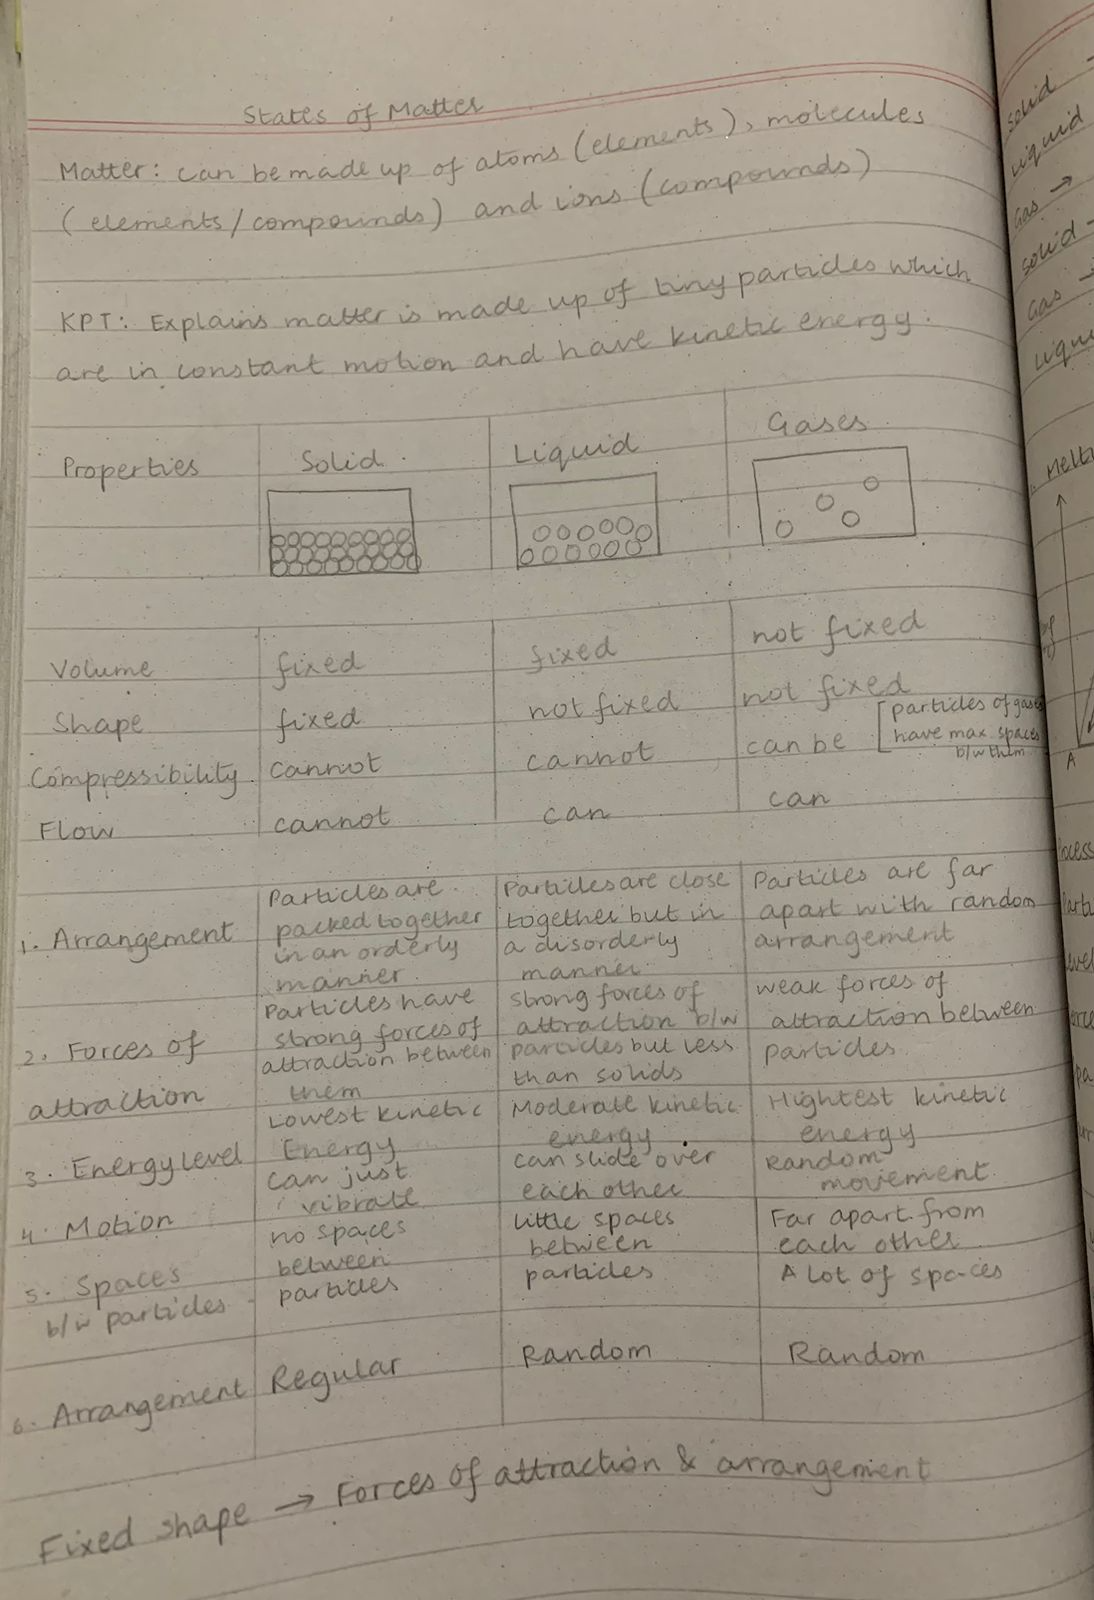 States of Matter
Matter: can be made up of atoms (elements), molecules
(elements/compounds) and ions (compounds)
KPT: Explains matter is made up of tiny particles which
are in constant motion and have kinetic energy.
Properties Solid Liquid Gases
Volume fixed fixed not fixed
Shape fixed not fixed not fixed
Compressibility cannot cannot can be [particles of gases
have max. spaces
b/w them
Flow cannot can can
1. Arrangement
Particles are
packed together
in an orderly
manner.
Particles are close
together but in
a disorderly
manner.
Particles are far
apart with random
arrangement
2. Forces of
attraction
Particles have
strong forces of
attraction between
them
strong forces of
attraction b/w
particles but less
than solids
weak forces of
attraction between
particles
3. Energy level
Lowest kinetic
Energy
Moderate kinetic
energy.
Hightest kinetic
energy
4. Motion
can just
vibrate
can slide over
each other
Random
movement.
5. Spaces
b/w particles
no spaces
between
particles
little spaces
between
particles
Far apart from
each other
A lot of spaces
6. Arrangement Regular Random Random
Fixed shape → Forces of attraction & arrangement
solid
liquid
Gas →
solid
Gas
A